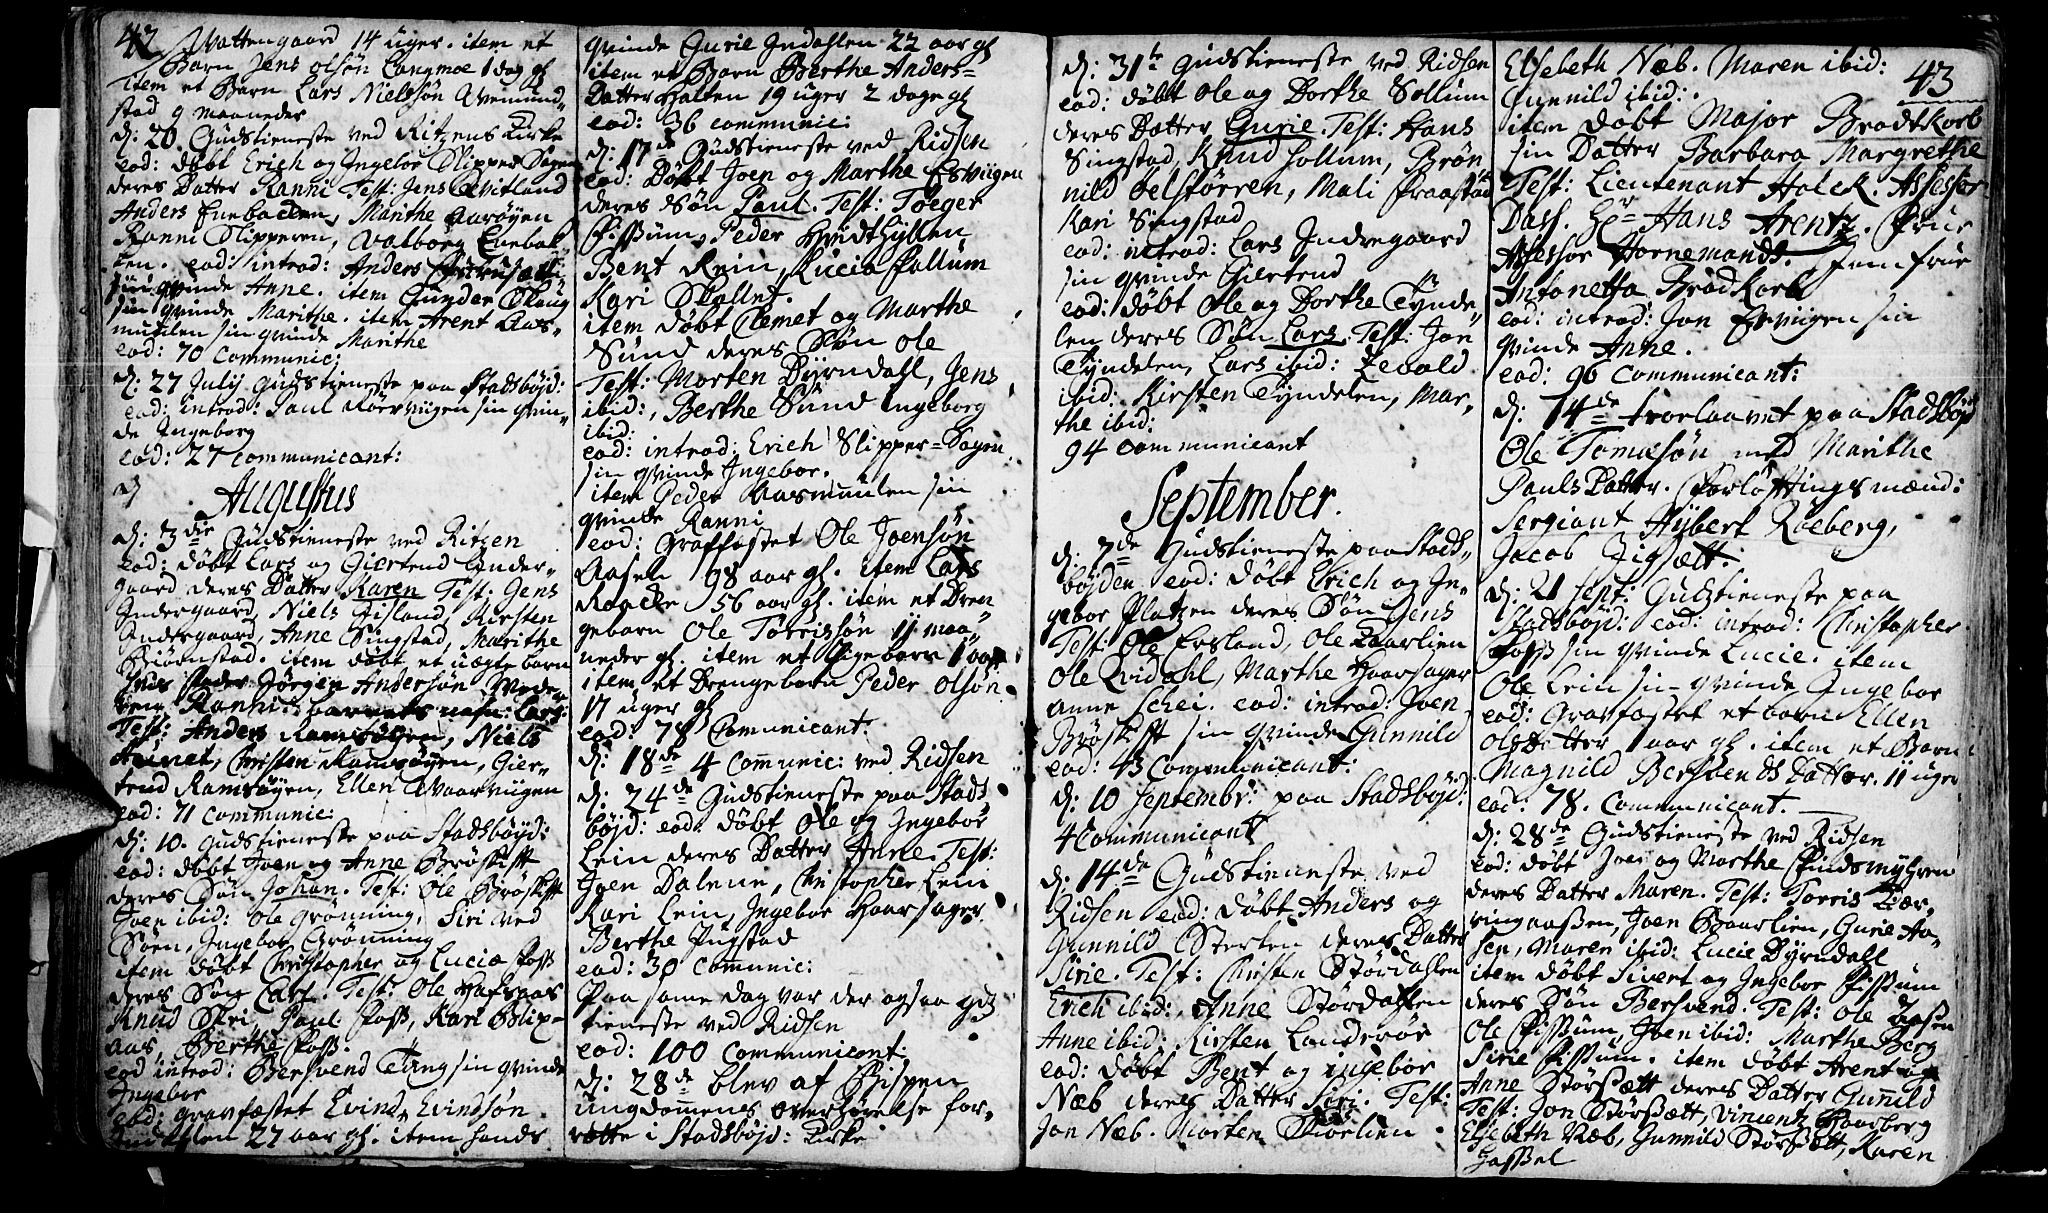 42 Vattengaard 14 uger. item et
Barn Jens Olsøn Langmoe 1 dag gl
item et Barn Lars Nielsøn Qvemund-
stad 9 maaneder
D: 20 Gudstieneste ved Ritzens Kirke
eod: døbt Erich og Ingebor Slipper Sagen
deres Datter Ranni Test: Jens Qvitland
Anders Enebacken, Marithe Aarøyen
Ranni Slipperen, Valborg Enebak-
ken. eod: introd: Anders
sin qvinde Anne. item Gunder Skaug
sin qvinde Marithe. item Arent Aas-
muulen sin qvinde Marithe
eod: 70 Communic:
D: 27 Julij Gudstieneste paa Stadsbøjd:
eod: introd: Paul Rørviigen sin qvin-
de Ingeborg
eod: 27 communicant:
Augustus
D: 3die Gudstieneste ved Ritzen
eod: døbt Lars og Giertrud Inder-
gaard deres Datter Karen Test: Jens
Indergaard, Niels Fisland, Kirsten
Indergaard, Anne Singstad, Marithe
Biørnstad. item døbt et uægte barn
hvis fader Jørgen Andersøn Mode-
ren Ranni: barnets nafn: Lars:
Test: Anders Ramsøyen, Niels
Aunet, Christen Ramsøyen, Gier-
trud Ramsøyen, Ellen Qvaarviigen
eod: 71 communic:
D: 10. Gudstieneste paa Stadsbøyd:
eod: døbt Joen og Anne Brøskift
deres Søn Johan. Test: Ole Brøskift
Joen ibid: Ole Grønning, Siri ved
Søen, Ingebor Grønning
item døbt Christopher og Lucia Foss
deres Søn Carl. Test: Ole Hafsaas
Knud Stri, Paul Foss, Kari Blix-
aas, Berthe Foss.
eod introd: Bersvend Tung sin qvinde
Ingebor
eod: gravfæstet Evind Evindsøn
Indahlen 27 aar gl. item hands
qvinde Gurie Indahlen 22 aar gl
item et Barn Berthe Anders-
Datter Halten 19 uger 2 dage gl
eod: 36 communic:
D: 17de Gudstieneste ved Ridsen
eod: Døbt Joen og Marthe Esviigen
deres Søn Paul. Test: Tøeger
Fissum, Peder Hvidthyllen
Bent Rein, Lucia Follum
Kari Skallet.
item døbt Clemet og Marthe
Sund deres Søn Ole
Test: Morten Dyrndahl, Jens
ibid:, Berthe Sund Ingeborg
ibid:
eod: introd: Erich Slipper-Sagen
sin qvinde Ingebor.
item Peder Aasmuulen sin
qvinde Ranni
eod: Graffæstet Ole Joensøn
Aasen 98 aar gl. item Lars
Raacke 56 aar gl. item et Dren
gebarn Ole Torrissøn 11 maa-
neder gl. item et Pigebarn 1 aar
item et Drengebarn Peder Olsøn
17 uger gl
eod: 78 Comunicant:
D: 18de 4 Communic: ved Ridsen
D: 24de Gudstieneste paa Stads
bøjd: eod: døbt Ole og Ingebor
Lein deres Datter Anne. Test:
Joen Dalene, Christopher Lein
Kari Lein, Ingebor Haarsager
Berthe Pugstad
eod: 30 Communic:
Paa same dag var der ogsaa gudz
tieneste ved Ridsen
eod: 100 Communicant:
D: 28de blev af Bispen
ungdomenes overhørelse for-
rette i Stadsbøjd: Kirke
D: 31te Gudstieneste ved Ridsen
eod: døbt Ole og Dorthe Sollum
deres Datter Gurie. Test: Hans
Singstad, Knud Sollum, Brøn
nild Selstørren, Mali Fraastad
Kari Singstad
eod: introd: Lars Indregaard
sin qvinde Giertrud
eod: døbt Ole og Dorthe Tynde-
len deres Søn Lars. Test: Jon
Tyndelen, Lars ibid: Zevald
ibid: Kirsten Tyndelen, Mar-
the ibid:
94 communicant
September.
D: 7de Gudstieneste paa Stads-
bøjden eod: døbt Erich og In-
gebor Platzen deres Søn Jens
Test: Ole Ersland, Ole Baarlien
Ole Qvidahl, Marthe Haarsager
Anne Schei. eod: introd: Joen
Brøskift sin qvinde Gunnild
eod: 43 Communicant:
D: 10 Septembr: paa Stadsbøjd:
4 Communicant
D: 14de Gudstieneste ved
Ridsen eod: døbt Anders og
Gunnild Sterten deres Datter
Sirie. Test: Christen Størdahlen
Erich ibid:, Anne Størdahlen
Anne ibid: Kirsten Landerøe
eod: døbt Bent og Ingebor
Næb deres Datter Siri. Test:
Jon Næb. Morten Skorlien
Elsebeth Næb. Maren ibid: 43
Gunnild ibid:
item døbt Major Brodtkorb
sin Datter Barbara Margrethe
Test: Lieutenant Holck. Assessor
Dass. Hr Hans Arentz. Frue
Assessor Hornemands. Jomfrue
Antonetta Brodkorb
eod: introd: Jon Esviigen sin
qvinde Anne.
eod: 96 Communicant:
D: 14de troelovet paa Stadsbøjd
Ole Tomasøn med Marithe
PaulsDatter. Forløftningsmænd:
Sergiant Hybert Roeberg,
Jacob Zigsætt:
D: 21 Sept: Gudstieneste paa
Stadsbøjd: eod: introd: Christopher
Foss sin qvinde Lucie. item
Ole Lein sin qvinde Ingebor
eod: Gravfæstet et barn Ellen
OlsDatter 1 aar gl. item et Barn
Magnild BersvendsDatter. 11 uger
eod: 78. Communicant.
D: 28de Gudstieneste ved Ridsen
eod: døbt Joen og Marthe Findsmyhren
deres Datter Maren. Test: Torris Kier-
ringaassen, Joen Baarlien, Gurie Aa-
sen, Maren ibid: Lucie Dyrndahl
item døbt Sivert og Ingebor Fissum
deres Søn Bersvend. Test: Ole Aasen
Ole Fissum, Joen ibid: Marthe Berg
Sirie Fissum. item døbt Arent og
Anne Størssætt deres Datter Gunild
Test: Jon Størssætt, Vincentz Haarberg
Elsebeth Næb, Gunnild Størssætt, Karen
Hassel